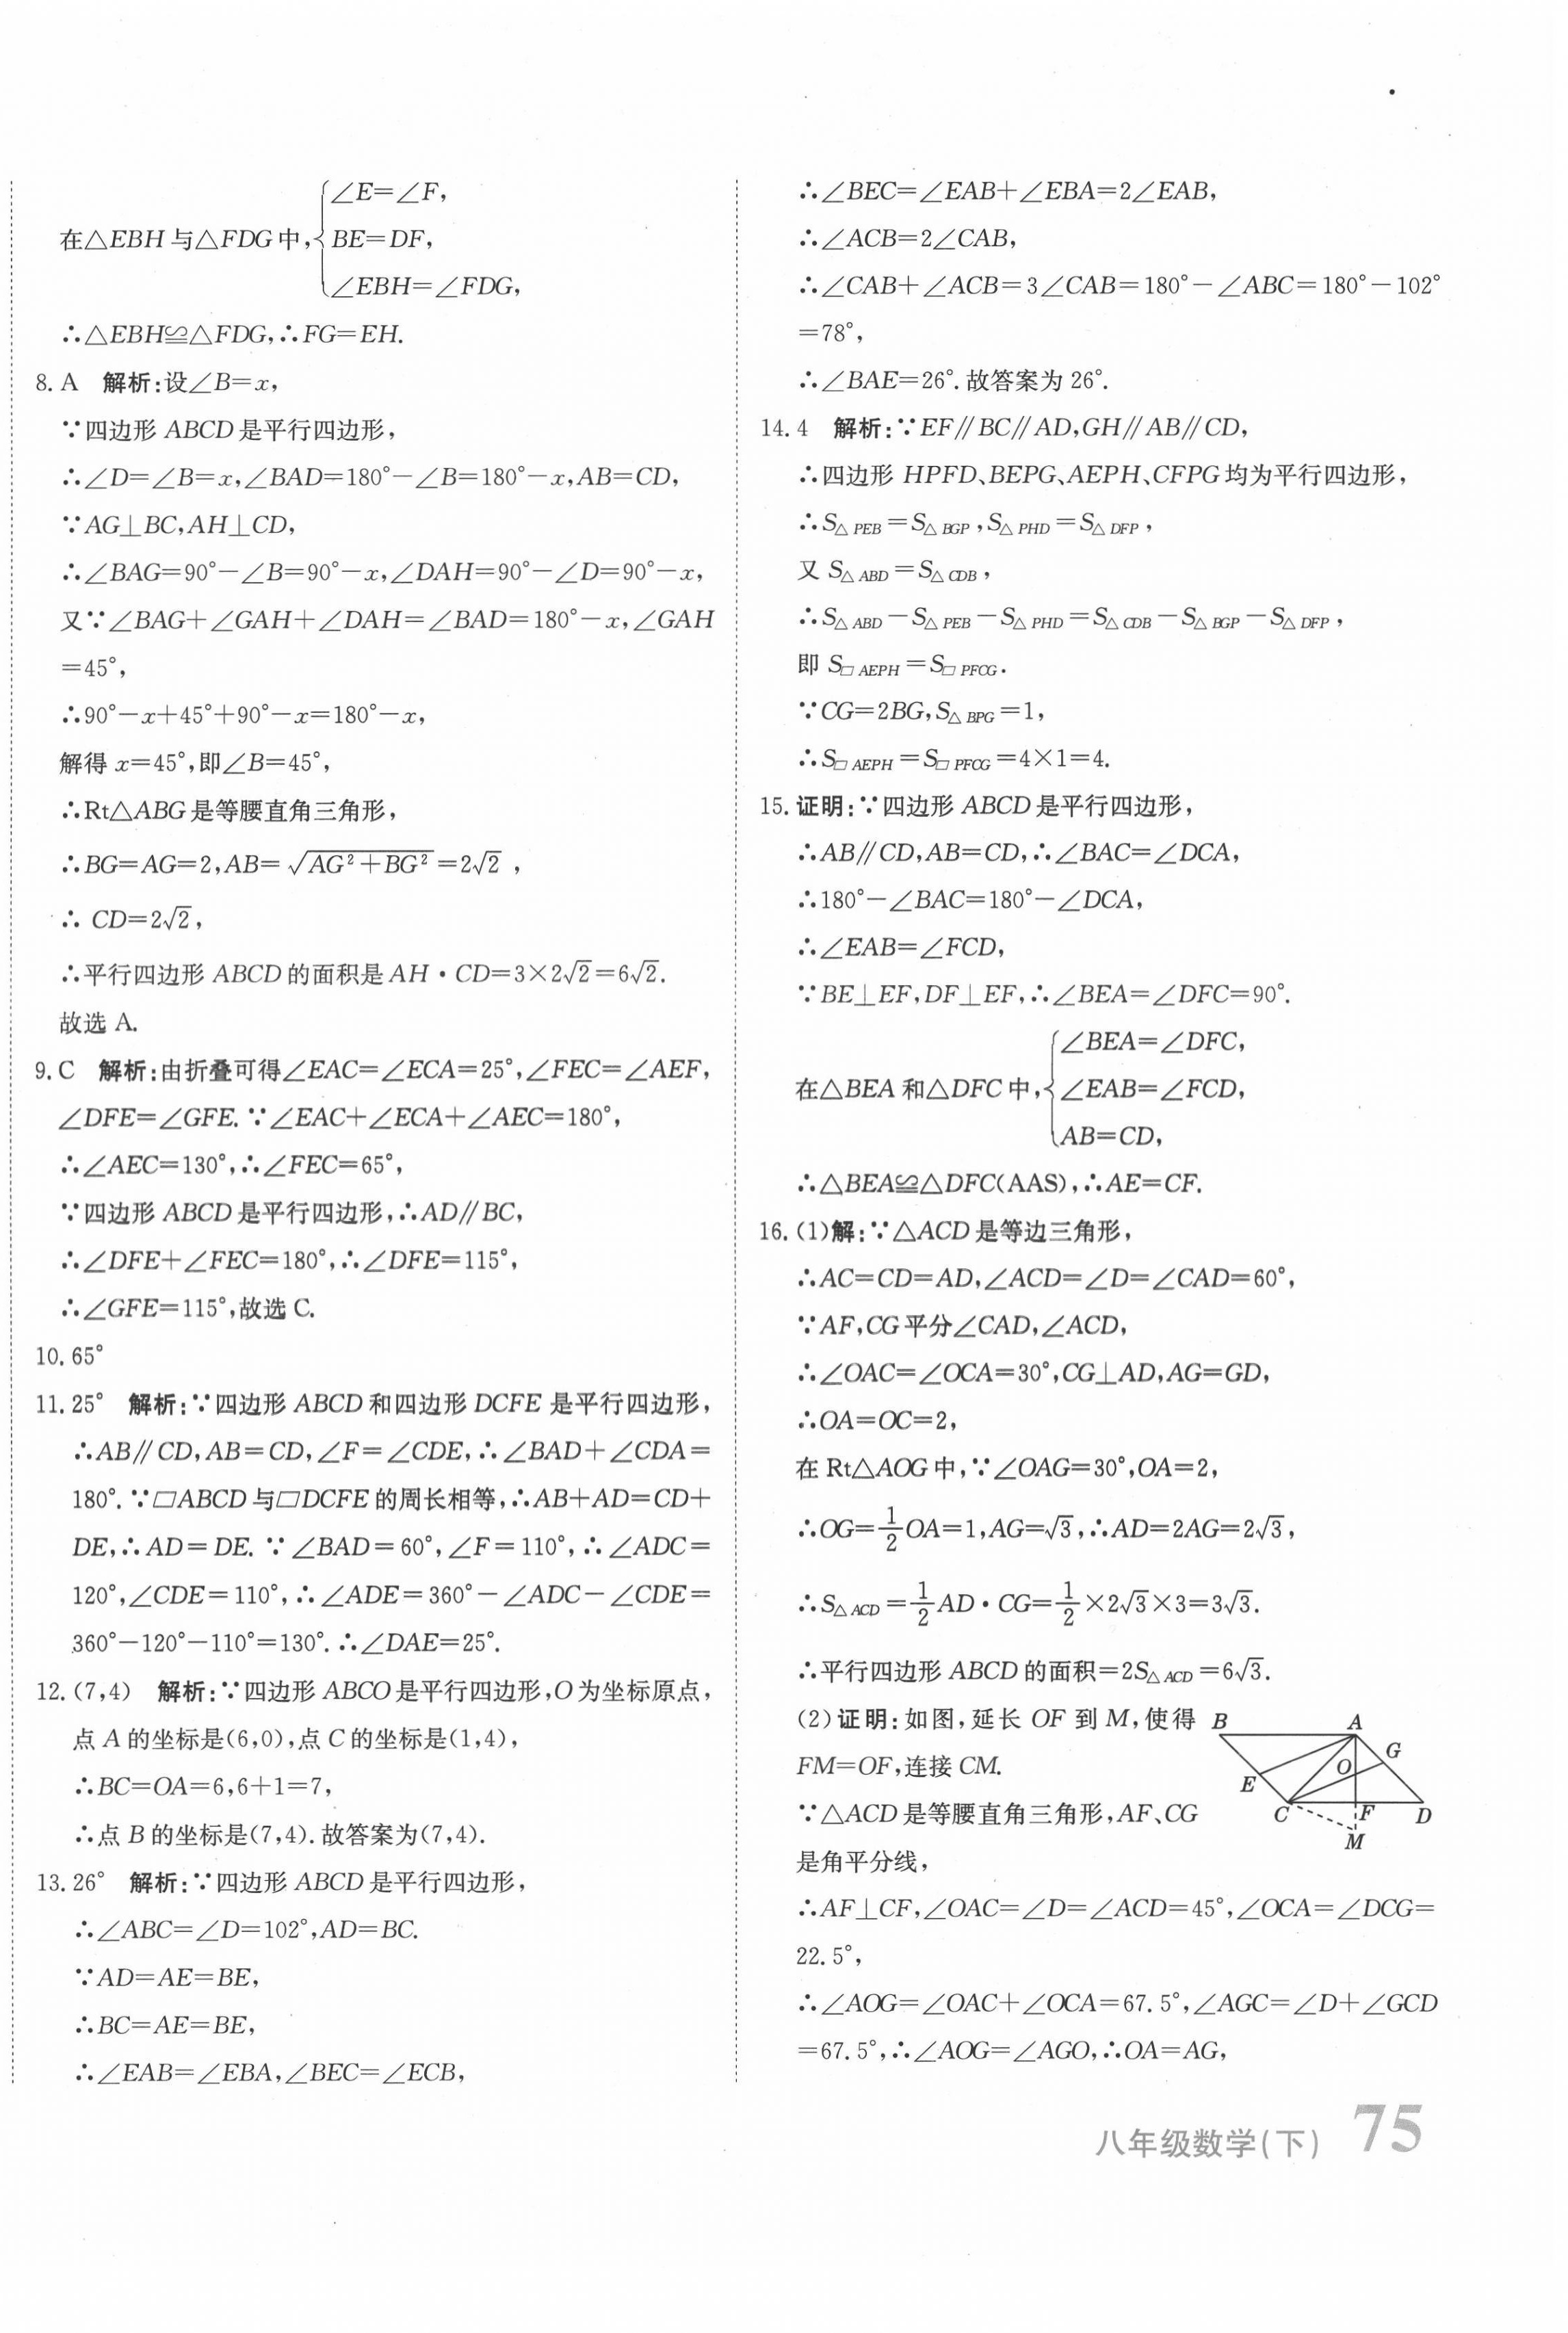 在△EBH与△FDG中,{∠E=∠F,
BE=DF,
∠EBH=∠FDG,
∴△EBH≌△FDG,∴FG=EH.
8. A 解析:设∠B=x,
∵四边形 ABCD 是平行四边形,
∴∠D=∠B=x,∠BAD=180°-∠B=180°-x,AB=CD,
∵AG⊥BC,AH⊥CD,
∴∠BAG=90°-∠B=90°-x,∠DAH=90°-∠D=90°-x,
又∵∠BAG+∠GAH+∠DAH=∠BAD=180°-x,∠GAH
=45°,
∴90°-x+45°+90°-x=180°-x,
解得 x=45°,即∠B=45°,
∴Rt△ABG 是等腰直角三角形,
∴BG=AG=2,AB=√(AG²+BG²)=2√2 ,
∴ CD=2√2,
∴平行四边形 ABCD 的面积是 AH·CD=3×2√2=6√2.
故选 A.
9. C 解析:由折叠可得∠EAC=∠ECA=25°,∠FEC=∠AEF,
∠DFE=∠GFE.∵∠EAC+∠ECA+∠AEC=180°,
∴∠AEC=130°,∴∠FEC=65°,
∵四边形 ABCD 是平行四边形,∴AD∥BC,
∴∠DFE+∠FEC=180°,∴∠DFE=115°,
∴∠GFE=115°,故选 C.
10. 65°
11. 25° 解析:∵四边形 ABCD 和四边形 DCFE 是平行四边形,
∴AB∥CD,AB=CD,∠F=∠CDE,∴∠BAD+∠CDA=
180°.∵▱ABCD 与▱DCFE 的周长相等,∴AB+AD=CD+
DE,∴AD=DE.∵∠BAD=60°,∠F=110°,∴∠ADC=
120°,∠CDE=110°,∴∠ADE=360°-∠ADC-∠CDE=
360°-120°-110°=130°.∴∠DAE=25°.
12. (7,4) 解析:∵四边形 ABCO 是平行四边形,O 为坐标原点,
点 A 的坐标是(6,0),点 C 的坐标是(1,4),
∴BC=OA=6,6+1=7,
∴点 B 的坐标是(7,4).故答案为(7,4).
13. 26° 解析:∵四边形 ABCD 是平行四边形,
∴∠ABC=∠D=102°,AD=BC.
∵AD=AE=BE,
∴BC=AE=BE,
∴∠EAB=∠EBA,∠BEC=∠ECB,
∴∠BEC=∠EAB+∠EBA=2∠EAB,
∴∠ACB=2∠CAB,
∴∠CAB+∠ACB=3∠CAB=180°-∠ABC=180°-102°
=78°,
∴∠BAE=26°.故答案为 26°.
14. 4 解析:∵EF∥BC∥AD,GH∥AB∥CD,
∴四边形 HPFD、BEPG、AEPH、CFPG 均为平行四边形,
∴S△PEB=S△BGP,S△PHD=S△DFP,
又 S△ABD=S△CDB,
∴S△ABD-S△PEB-S△PHD=S△CDB-S△BGP-S△DFP,
即 S▱AEPH=S▱PFCG.
∵CG=2BG,S△BPG=1,
∴S▱AEPH=S▱PFCG=4×1=4.
15. 证明:∵四边形 ABCD 是平行四边形,
∴AB∥CD,AB=CD,∴∠BAC=∠DCA,
∴180°-∠BAC=180°-∠DCA,
∴∠EAB=∠FCD,
∵BE⊥EF,DF⊥EF,∴∠BEA=∠DFC=90°.
在△BEA 和△DFC 中,{∠BEA=∠DFC,
∠EAB=∠FCD,
AB=CD,
∴△BEA≌△DFC(AAS),∴AE=CF.
16. (1)解:∵△ACD 是等边三角形,
∴AC=CD=AD,∠ACD=∠D=∠CAD=60°,
∵AF,CG 平分∠CAD,∠ACD,
∴∠OAC=∠OCA=30°,CG⊥AD,AG=GD,
∴OA=OC=2,
在 Rt△AOG 中,∵∠OAG=30°,OA=2,
∴OG=1/2OA=1,AG=√3,∴AD=2AG=2√3,
∴S△ACD=1/2AD·CG=1/2×2√3×3=3√3.
∴平行四边形 ABCD 的面积=2S△ACD=6√3.
(2)证明:如图,延长 OF 到 M,使得
FM=OF,连接 CM.
∵△ACD 是等腰直角三角形,AF、CG
是角平分线,
B A G O E C F D M
∴AF⊥CF,∠OAC=∠D=∠ACD=45°,∠OCA=∠DCG=
22.5°,
∴∠AOG=∠OAC+∠OCA=67.5°,∠AGC=∠D+∠GCD
=67.5°,∴∠AOG=∠AGO,∴OA=AG,
八年级数学(下) 75